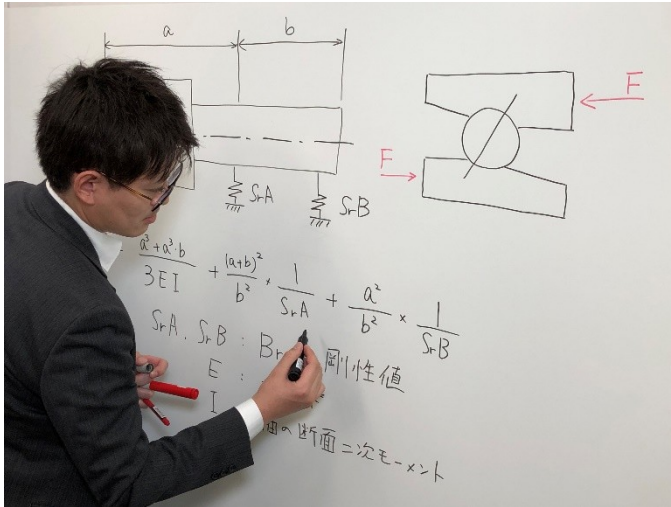 a b
F
F
SrA SrB
a³+a³·b/3EI + (a+b)²/b² × 1/SrA + a²/b² × 1/SrB
SrA. SrB : Br 剛性値
E :
I の断面二次モーメント